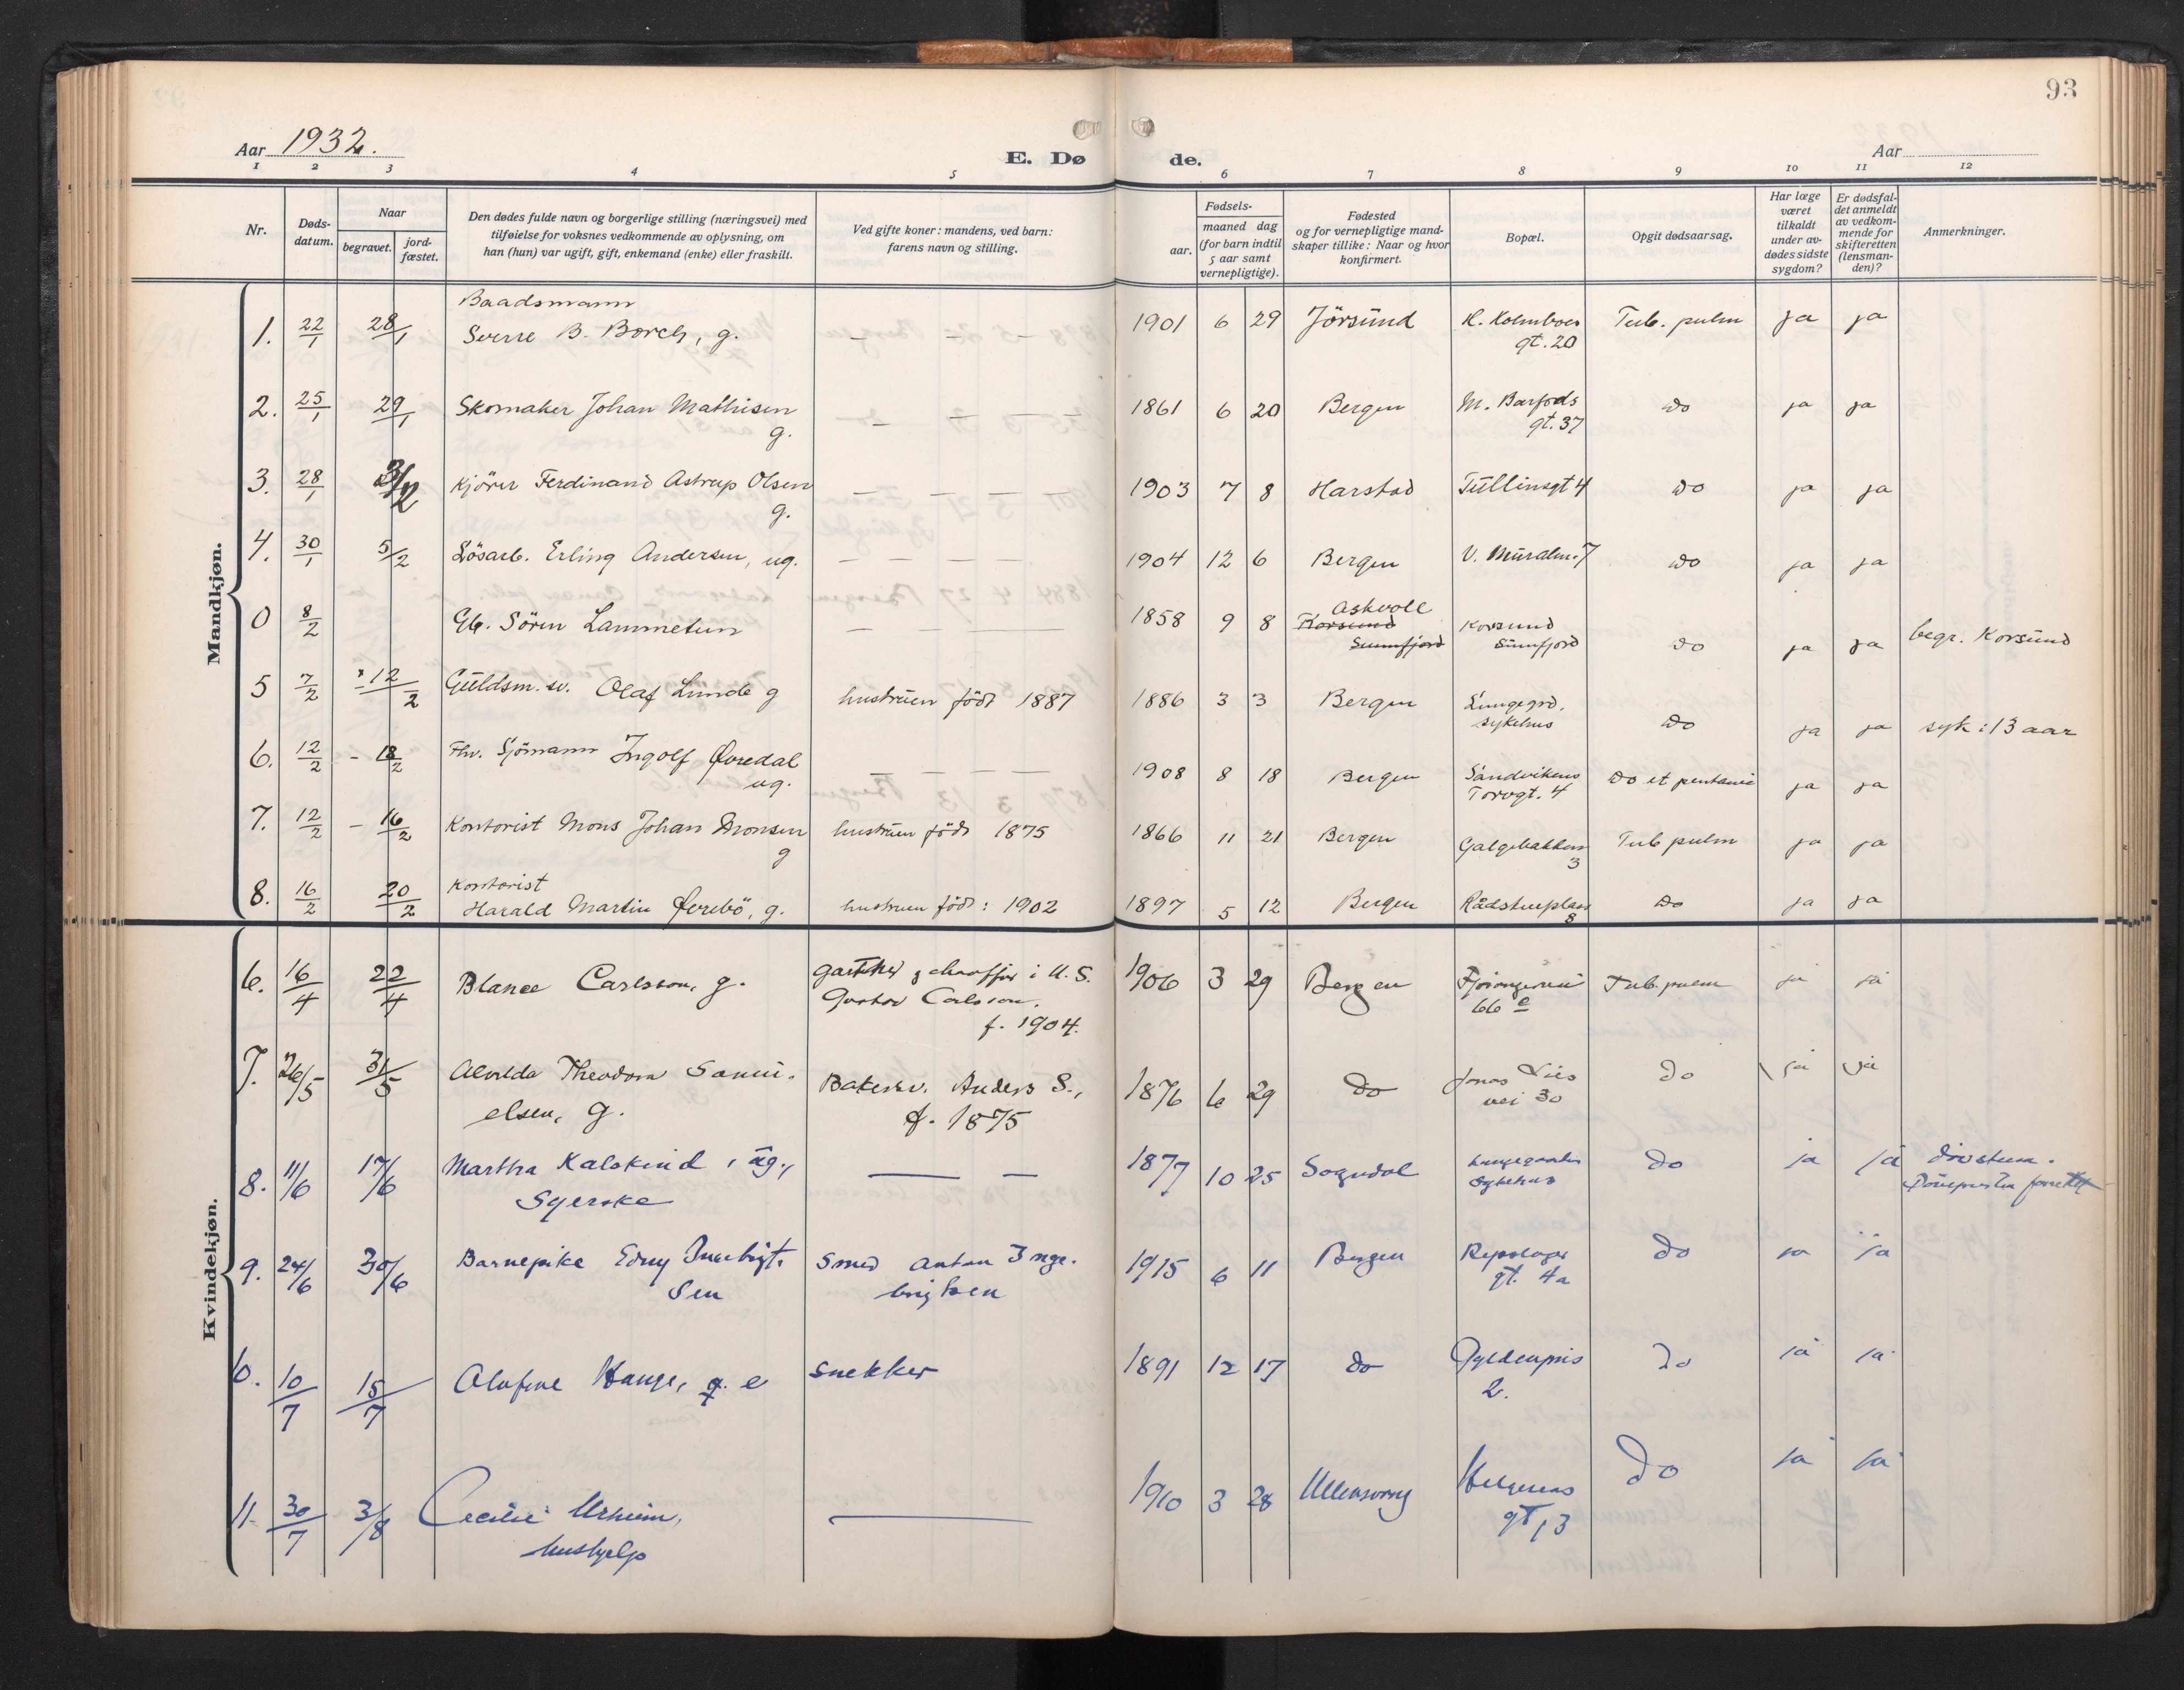 93
Aar 1932.
E. Dø de.
Aar
1 2 3 4 5 6 7 8 9 10 11 12
Nr.
Døds-
datum.
Naar
begravet.
jord-
fæstet.
Den dødes fulde navn og borgerlige stilling (næringsvei) med
tilføielse for voksnes vedkommende av oplysning, om
han (hun) var ugift, gift, enkemand (enke) eller fraskilt.
Ved gifte koner: mandens, ved barn:
farens navn og stilling.
Fødsels-
aar.
maaned dag
(for barn indtil
5 aar samt
vernepligtige).
Fødested
og for vernepligtige mand-
skaper tillike: Naar og hvor
konfirmert.
Bopæl.
Opgit dødsaarsag.
Har læge
været
tilkaldt
under av-
dødes sidste
sygdom?
Er dødsfal-
det anmeldt
av vedkom-
mende for
skifteretten
(lensman-
den)?
Anmerkninger.
Mandkjøn.
Baadsmann
1. 22/1 28/1 Sverre B. Borch, g. — — — 1901 6 29 Jörsund H. Holmboes Tub. pulm ja ja
gt. 20
2. 25/1 29/1 Skomaker Johan Mathisen 1861 6 20 Bergen M. Barfods do ja ja
g. gt. 37
3. 28/1 3/2 Kjörer Ferdinand Astrup Olsen — — — — 1903 7 8 Harstad Tullinsgt 4 do ja ja
g.
4. 30/1 5/2 Lösarb. Erling Andersen, ug. — — — — 1904 12 6 Bergen V. Muralm. 7 do ja ja
Askvoll
0 8/2 Gb. Sören Lammetun — — — 1858 9 8 Korsund Korsund do ja ja begr. Korsund
Sunnfjord Sunnfjord
5 7/2 12/2 Guldsm. sv. Olaf Lunde g hustruen född 1887 1886 3 3 Bergen Lungegrd. do ja ja syk: 13 aar
sykehus
6. 12/2 - 18/2 Fhv. Sjömann Ingolf Øvredal — — — — 1908 8 18 Bergen Sandvikens do et ja ja
ug. Torvgt. 4
7. 12/2 - 16/2 Kontorist Mons Johan Monsen hustruen född 1875 1866 11 21 Bergen Galgebakken Tub pulm ja ja
g 3
Kontorist
8. 16/2 20/2 Harald Martin Øvrebö, g. hustruen född: 1902 1897 5 12 Bergen Rådstueplass do ja ja
8
Kvindekjøn.
6. 16/4 22/4 Blance Carlsson, g. chauffør i U.S. 1906 3 29 Bergen Fjösangerveien Tub. pulm ja ja
Gustav Carlsson, 66 e
f. 1904.
7. 26/5 31/5 Alvilda Theodora Samu- Bakersv. Anders S., 1876 6 29 do Jonas Lies do ja ja
elsen, g. f. 1875 vei 30
8. 11/6 17/6 Martha Kalskind, ug., — — 1877 10 25 Sogndal Lungegaards do ja ja døvstum.
Syerske Sykehus
9. 24/6 30/6 Barnepike Edny Ingebrigt- Smed Anton Inge- 1915 6 11 Bergen Repslager do ja ja
sen brigtsen gt. 4a
10. 10/7 15/7 Olufine Hauge, g. e snekker 1891 12 17 do Gyldenpris do ja ja
2.
11. 30/7 3/8 Cecilie Urheim, — 1910 3 28 Ullensvang Helgesens do ja ja
hushjelp gt, 3